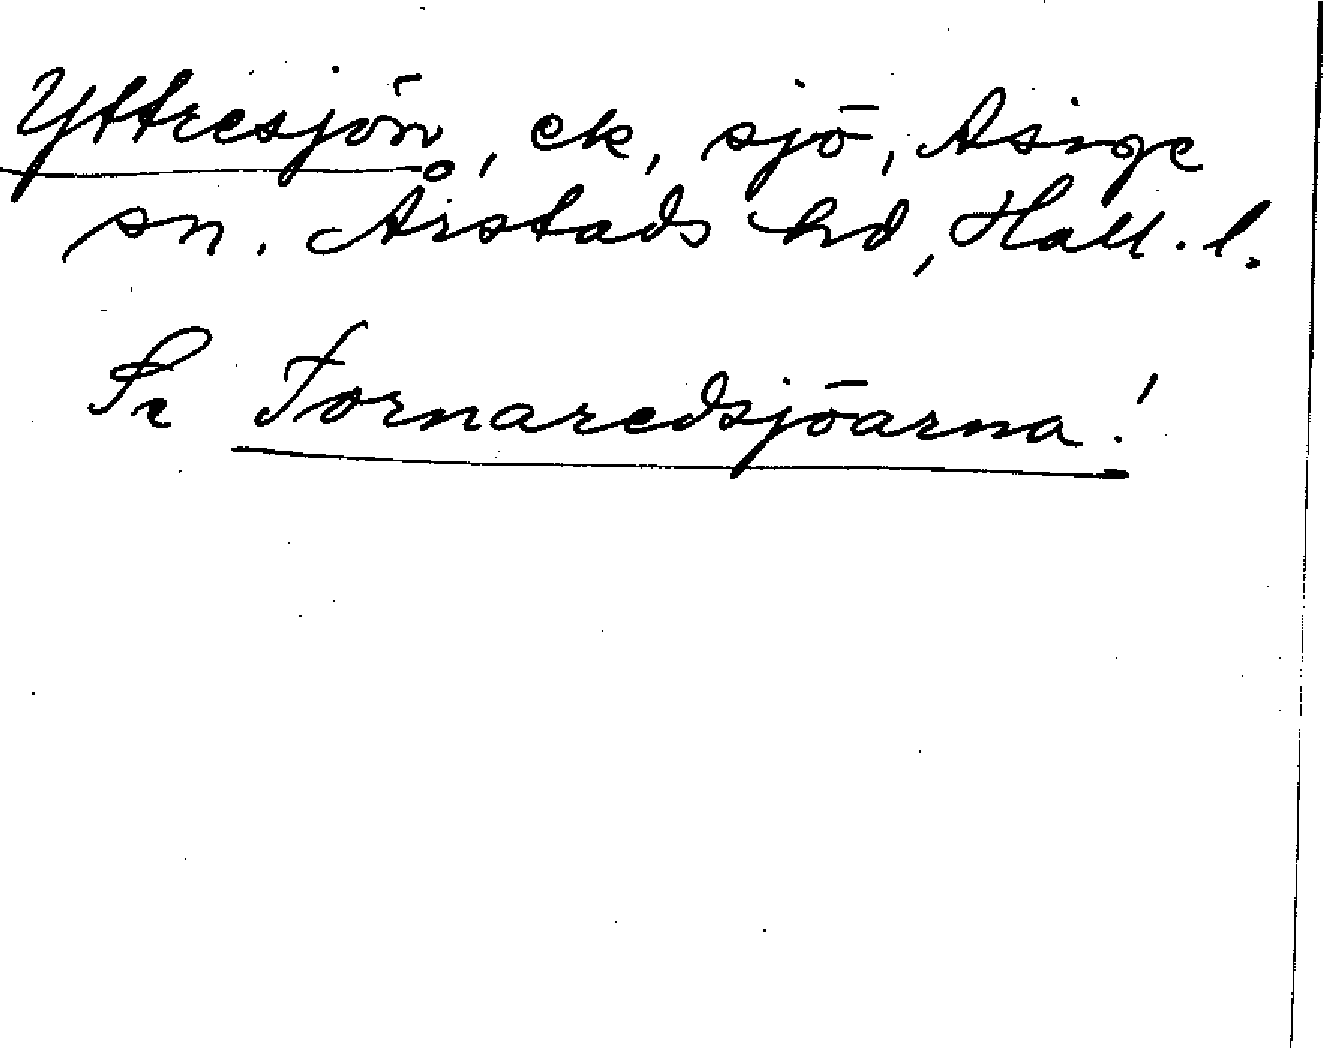 Yttresjön, ek, sjö, Asige
sn. Årstads hd, Hall. l.
Se Fornaredsjöarna!